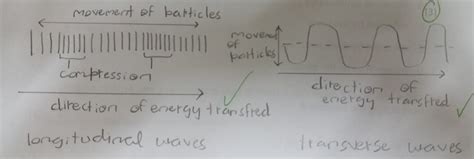 movement of particles
compression
direction of energy transfred
longitudinal waves
movement
of
particles
direction of
energy transfred
transverse waves